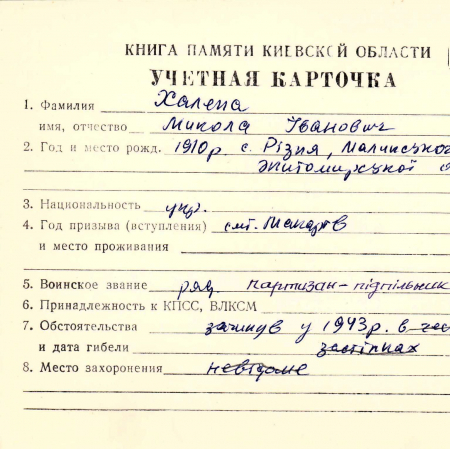 КНИГА ПАМЯТИ КИЕВСКОЙ ОБЛАСТИ
УЧЕТНАЯ КАРТОЧКА
1. Фамилия Халепа
имя, отчество Микола Іванович
2. Год и место рожд. 1910р с. Різня, Малинського
Житомирської
3. Национальность укр.
4. Год призыва (вступления) смт. Макарів
и место проживания
5. Воинское звание ряд партизан-підпільник
6. Принадлежность к КПСС, ВЛКСМ
7. Обстоятельства загинув у 1943р. в
и дата гибели застінках
8. Место захоронения невідоме